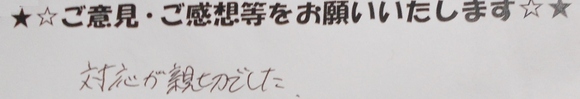 ★☆ご意見・ご感想等をお願いいたします☆★
対応が親切でした.